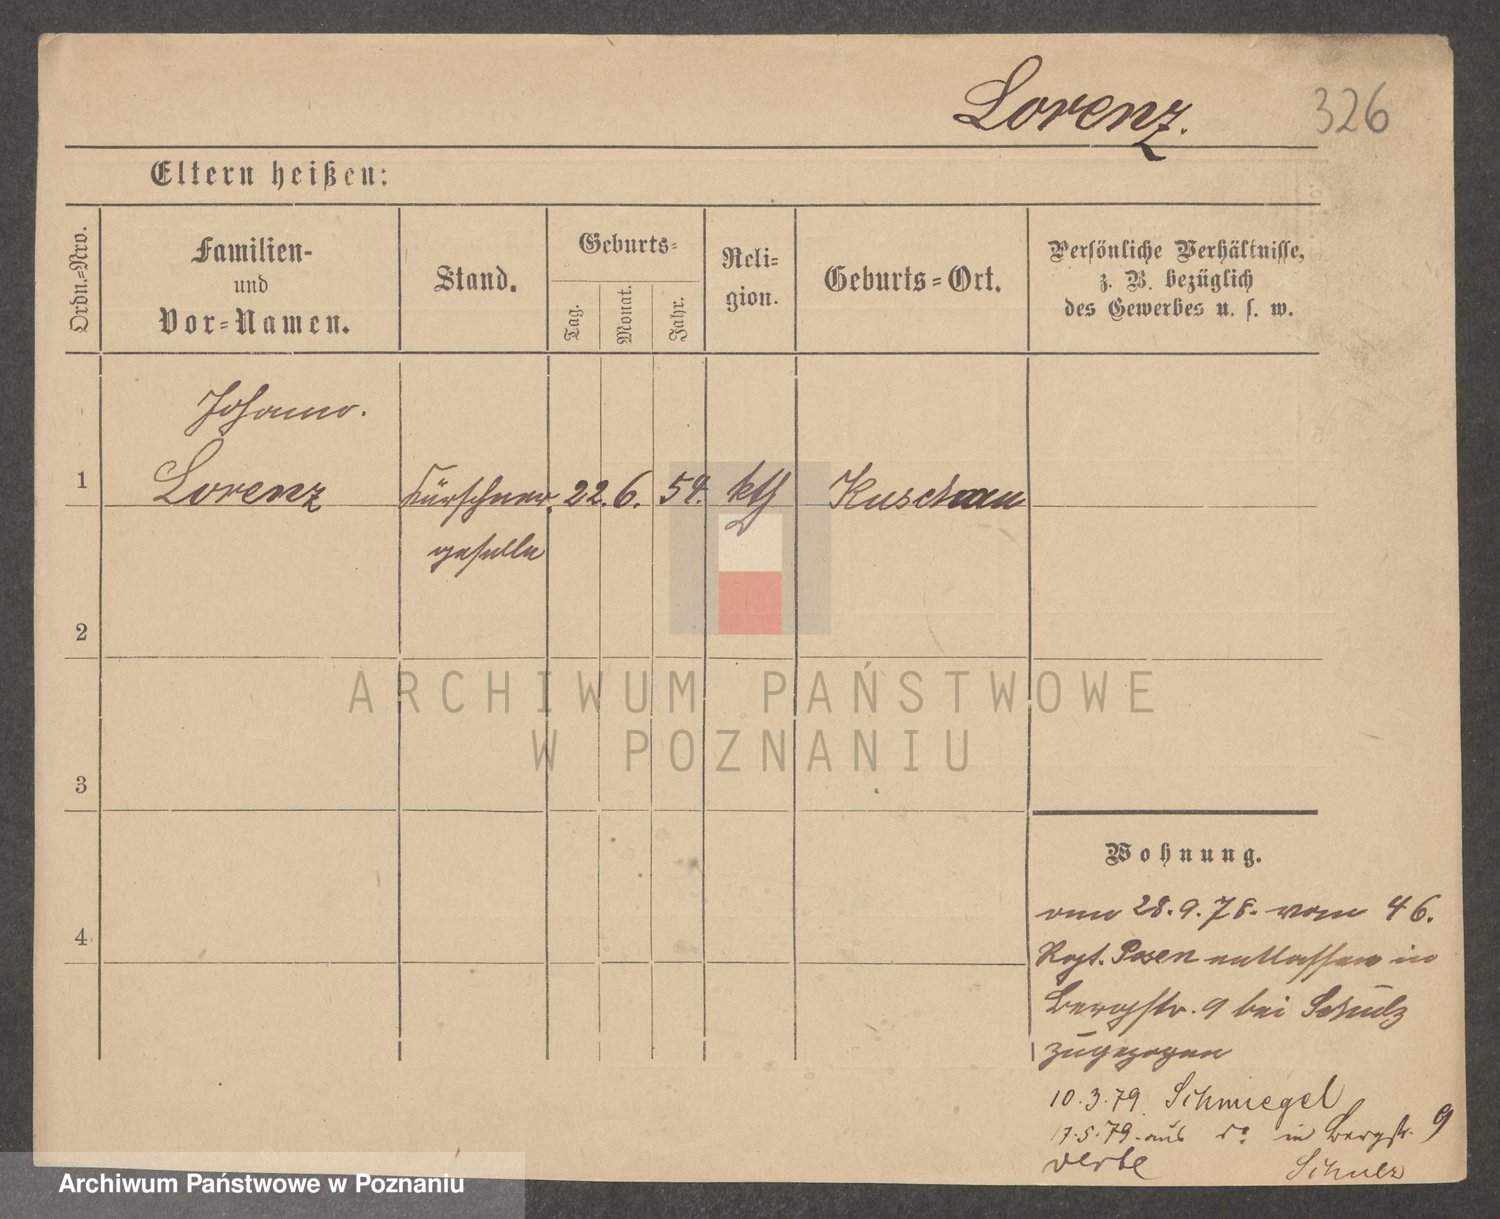 Lorenz. 326
Eltern heißen:
Ordn.-Nro.
Familien-
und
Vor-Namen.
Stand.
Geburts-
Tag.
Monat.
Jahr.
Reli-
gion.
Geburts-Ort.
Persönliche Verhältnisse,
z. B. bezüglich
des Gewerbes u. s. w.
Johann.
1 Lorenz Kürschner 22. 6. 54. kth Kuschau
geselle
2
3
4
Wohnung.
28.9.78. vom 46.
Regt. Posen entlassen in
Bergstr. 9 bei Schulz
zugezogen
10.3.79. Schmiegel
17.5.79. aus do in Bergstr. 9
Schulz
ARCHIWUM PAŃSTWOWE
W POZNANIU
Archiwum Państwowe w Poznaniu